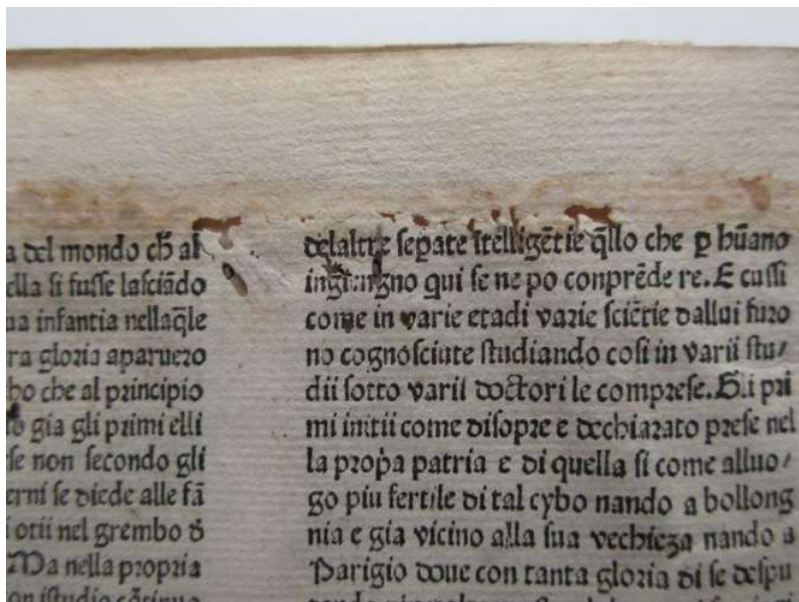 a del mondo ch̄ al
ella si fusse lasciādo
ua infantia nellaq̄le
ra gloria aparuero
bo che al principio
gia gli primi elli
se non secondo gli
erni se diede alle fā
i otii nel grembo d
Ma nella propria
on istudio cōtinuo
delaltre sep̄ate ītelligētie q̄llo che p̱ hūano
ingengno qui se ne po conprēde re. E cussi
come in varie etadi varie sciētie dallui furo
no cognosciute studiando cosi in varii stu/
dii sotto varii doctori le comprese. Gli pri
mi initii come disopre e dechiarato prese nel
la prop̄a patria e di quella si come alluo/
go piu fertile di tal cybo nando a bollong
nia e gia vicino alla sua vechieza nando a
Parigio doue con tanta gloria di se despu